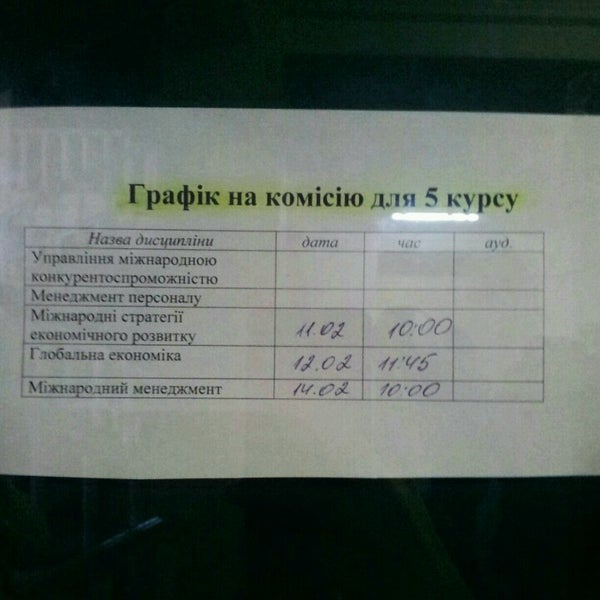 Графік на комісію для 5 курсу
Назва дисципліни дата час ауд.
Управління міжнародною
конкурентоспроможністю
Менеджмент персоналу
Міжнародні стратегії
економічного розвитку 11.02 10:00
Глобальна економіка 12.02 11:45
Міжнародний менеджмент 14.02 10:00